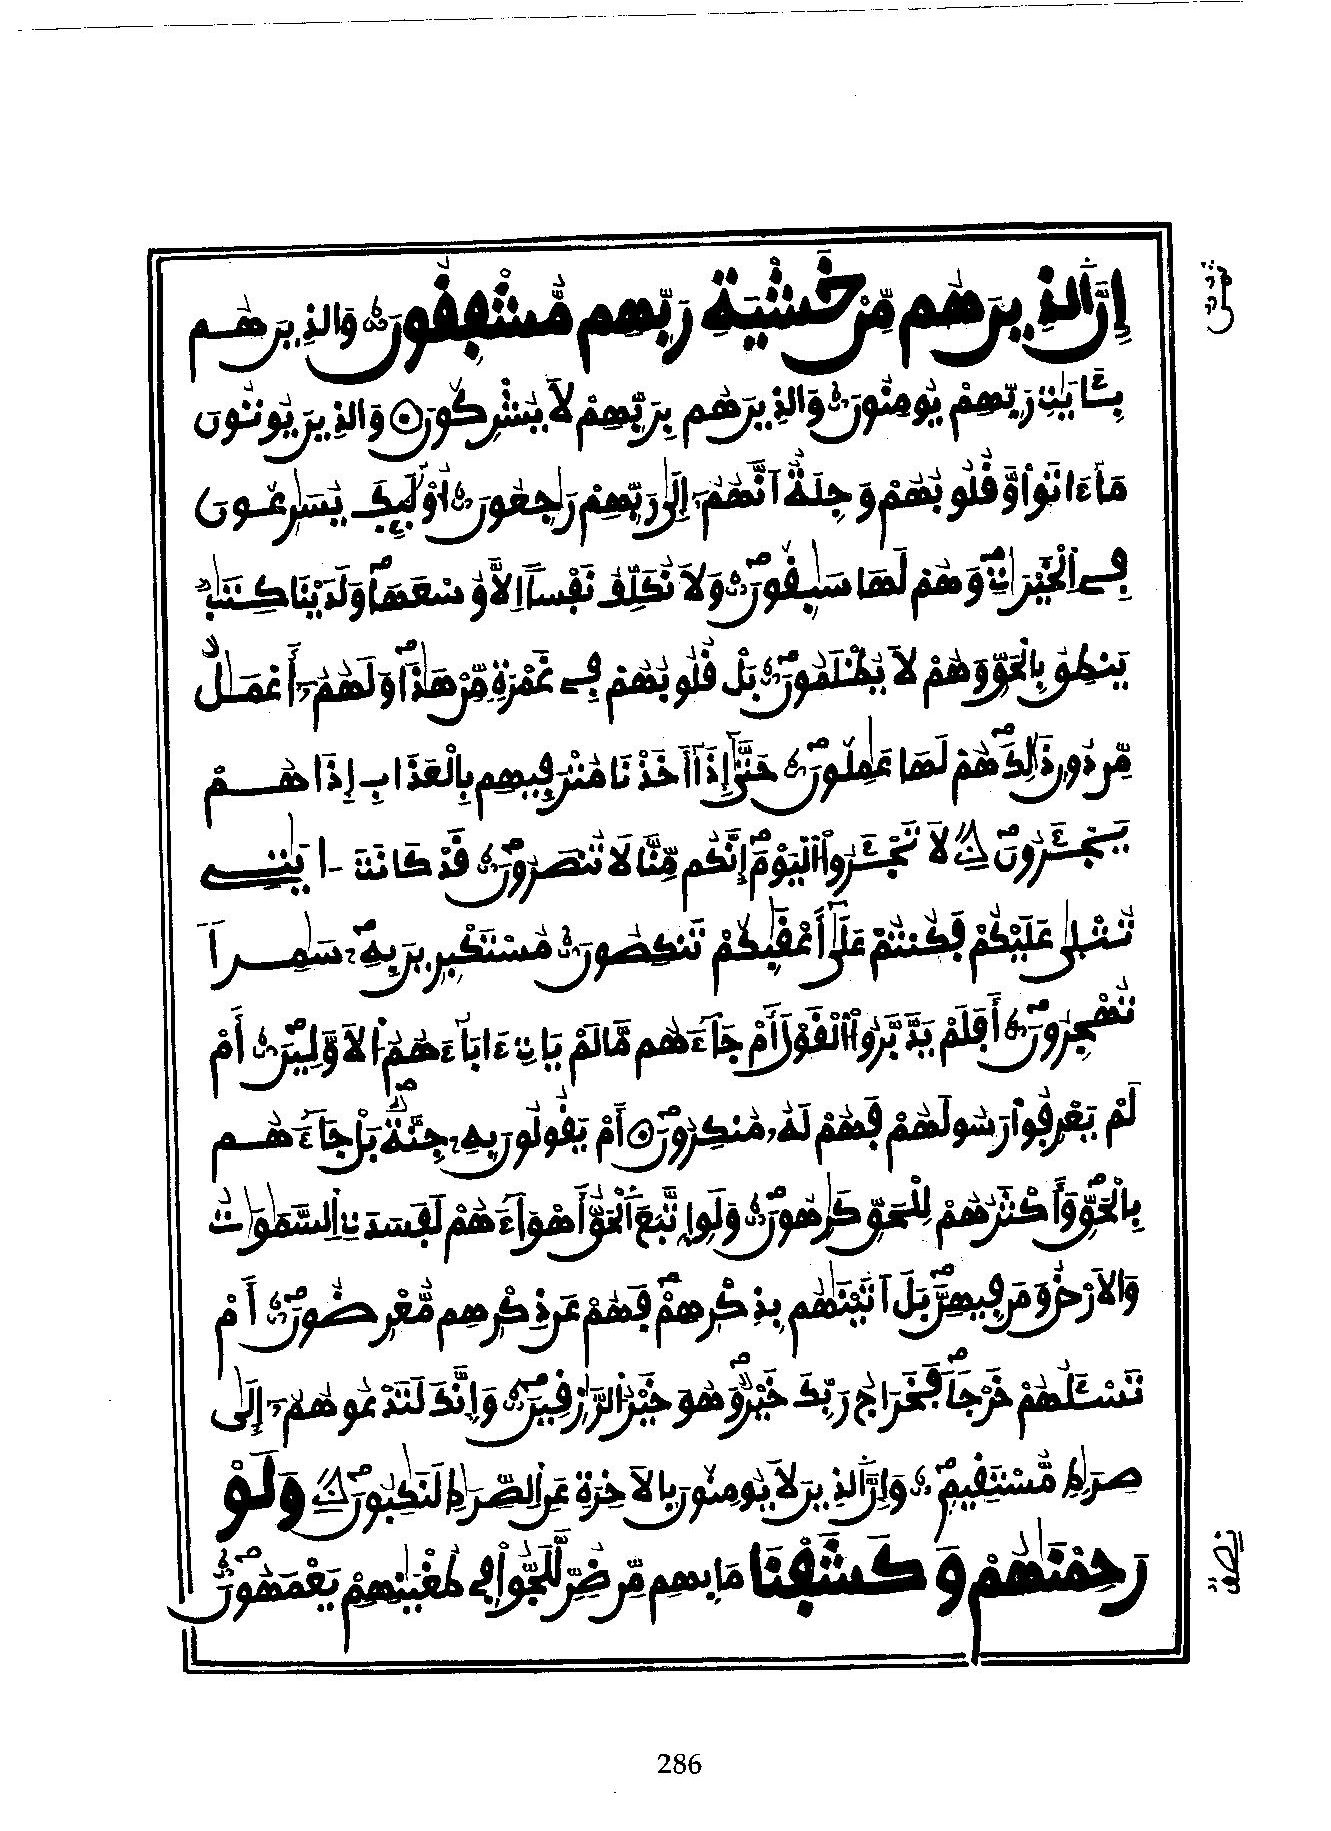 إِنَّ ٱلذِينَ هُم مِّنْ خَشْيَةِ رَبِّهِم مُّشْفِقُونَ وَالذِينَ هُم
ثمن
بِـَٔايَٰتِ رَبِّهِمْ يُومِنُونَ وَالذِينَ هُم بِرَبِّهِمْ لَا يُشْرِكُونَ وَالذِينَ يُوتُونَ
مَآ ءَاتَواْ وَّقُلُوبُهُمْ وَجِلَةٌ اَنَّهُمُۥٓ إِلَىٰ رَبِّهِمْ رَٰجِعُونَ أُوْلَٰٓئِكَ يُسَٰرِعُونَ
فِے اِ۬لْخَيْرَٰتِ وَهُمْ لَهَا سَٰبِقُونَ وَلَا نُكَلِّفُ نَفْساً اِلَّا وُسْعَهَا وَلَدَيْنَا كِتَٰبٌ
يَنطِقُ بِالْحَقِّ وَهُمْ لَا يُظْلَمُونَ بَلْ قُلُوبُهُمْ فِے غَمْرَةٍ مِّنْ هَٰذَا وَلَهُمُۥٓ أَعْمَٰلٌ
مِّن دُونِ ذَٰلِكَ هُمْ لَهَا عَٰمِلُونَ حَتَّىٰٓ إِذَآ أَخَذْنَا مُتْرَفِيهِم بِالْعَذَابِ إِذَا هُمْ
يَجْـَٔرُونَ لَا تَجْـَٔرُواْ اُ۬لْيَوْمَ إِنَّكُم مِّنَّا لَا تُنصَرُونَ قَدْ كَانَتَ اٰيَٰتِے
تُتْلَىٰ عَلَيْكُمْ فَكُنتُمْ عَلَىٰٓ أَعْقَٰبِكُمْ تَنكِصُونَ مُسْتَكْبِرِينَ بِهِۦ سَٰمِراً
تُهْجِرُونَ أَفَلَمْ يَدَّبَّرُواْ اُ۬لْقَوْلَ أَمْ جَآءَهُم مَّا لَمْ يَاتِ ءَابَآءَهُمُ اُ۬لَاوَّلِينَ أَمْ
لَمْ يَعْرِفُواْ رَسُولَهُمْ فَهُمْ لَهُۥ مُنكِرُونَ أَمْ يَقُولُونَ بِهِۦ جِنَّةٌ بَلْ جَآءَهُم
بِالْحَقِّ وَأَكْثَرُهُمْ لِلْحَقِّ كَٰرِهُونَ وَلَوِ اِ۪تَّبَعَ اَ۬لْحَقُّ أَهْوَآءَهُمْ لَفَسَدَتِ اِ۬لسَّمَٰوَٰتُ
وَالَارْضُ وَمَن فِيهِنَّ بَلَ اَتَيْنَٰهُم بِذِكْرِهِمْ فَهُمْ عَن ذِكْرِهِم مُّعْرِضُونَ أَمْ
تَسْـَٔلُهُمْ خَرْجاً فَخَرَاجُ رَبِّكَ خَيْرٌ وَهُوَ خَيْرُ اُ۬لرَّٰزِقِينَ وَإِنَّكَ لَتَدْعُوهُمُۥٓ إِلَىٰ
صِرَٰطٍ مُّسْتَقِيمٍ وَإِنَّ اَ۬لذِينَ لَا يُومِنُونَ بِالَاخِرَةِ عَنِ اِ۬لصِّرَٰطِ لَنَٰكِبُونَ وَلَوْ
رَحِمْنَٰهُمْ وَكَشَفْنَا مَا بِهِم مِّن ضُرٍّ لَّلَجُّواْ فِے طُغْيَٰنِهِمْ يَعْمَهُونَ
نصف
286